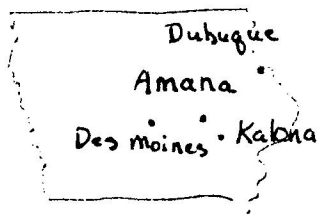 Dubuque
Amana
Des Moines
Kalona